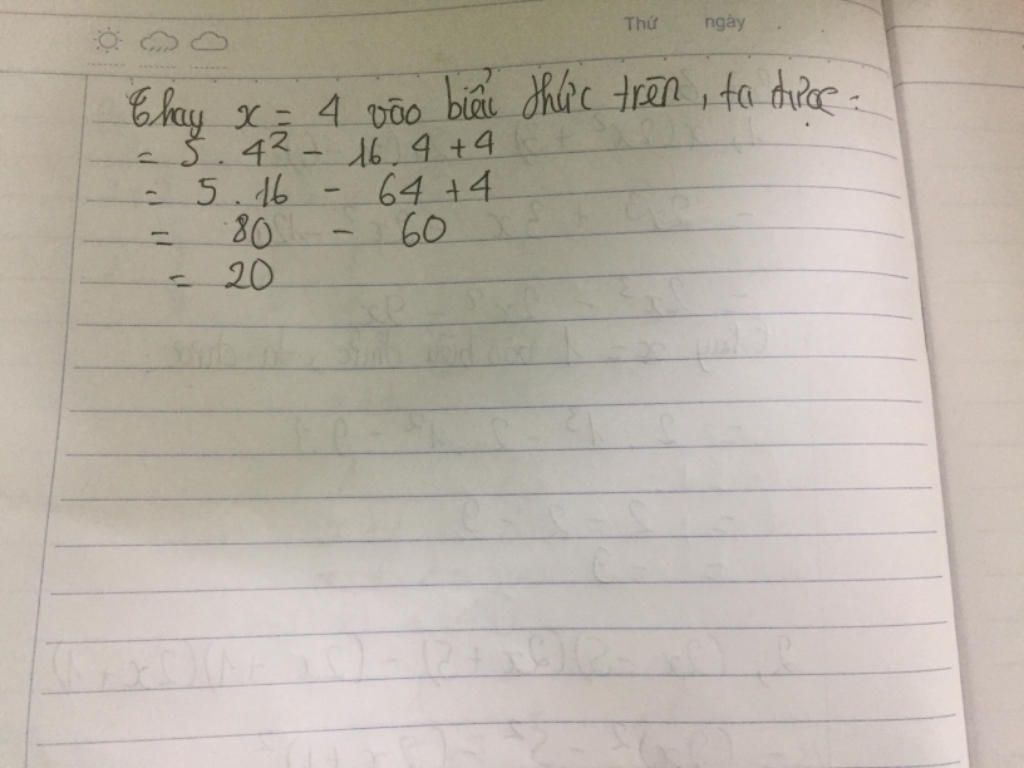 Thứ ngày
Thay x = 4 vào biểu thức trên, ta được:
= 5 . 4² - 16 . 4 + 4
= 5 . 16 - 64 + 4
= 80 - 60
= 20